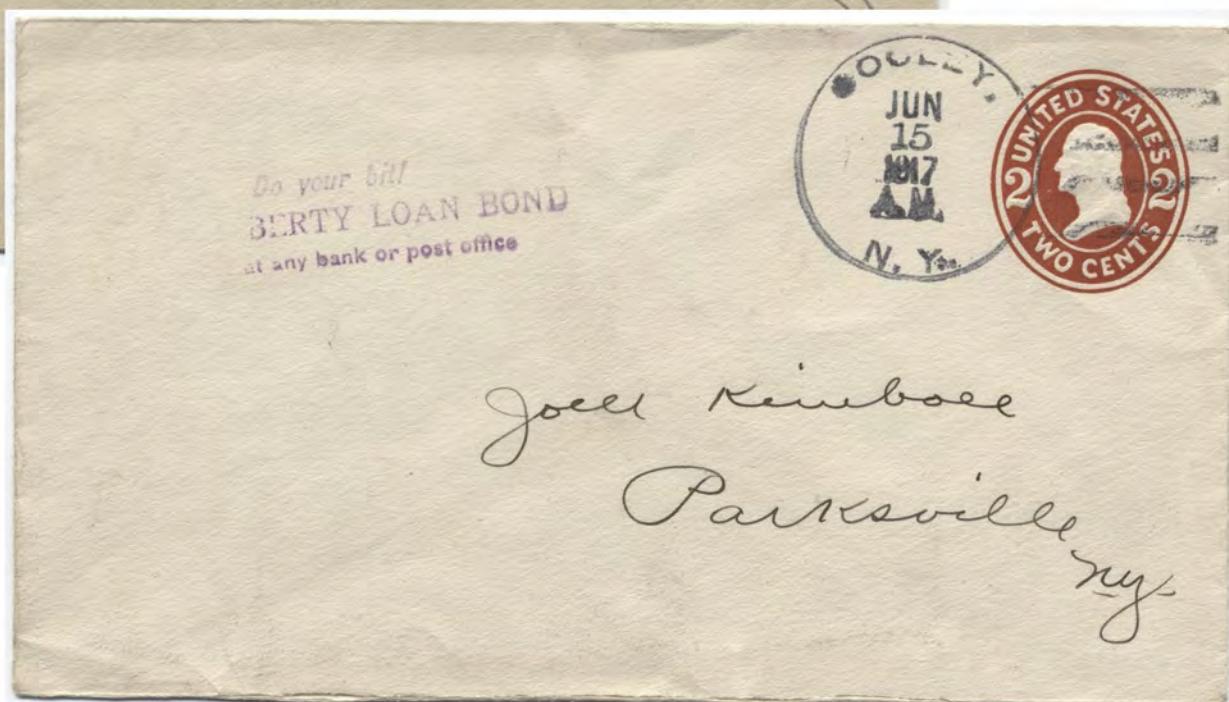 Do your bit!
BERTY LOAN BOND
at any bank or post office
OOLEY,
JUN
15
1917
A.M.
N.Y.
UNITED STATES
2 2
TWO CENTS
Joell Kimball
Parksville
ny.